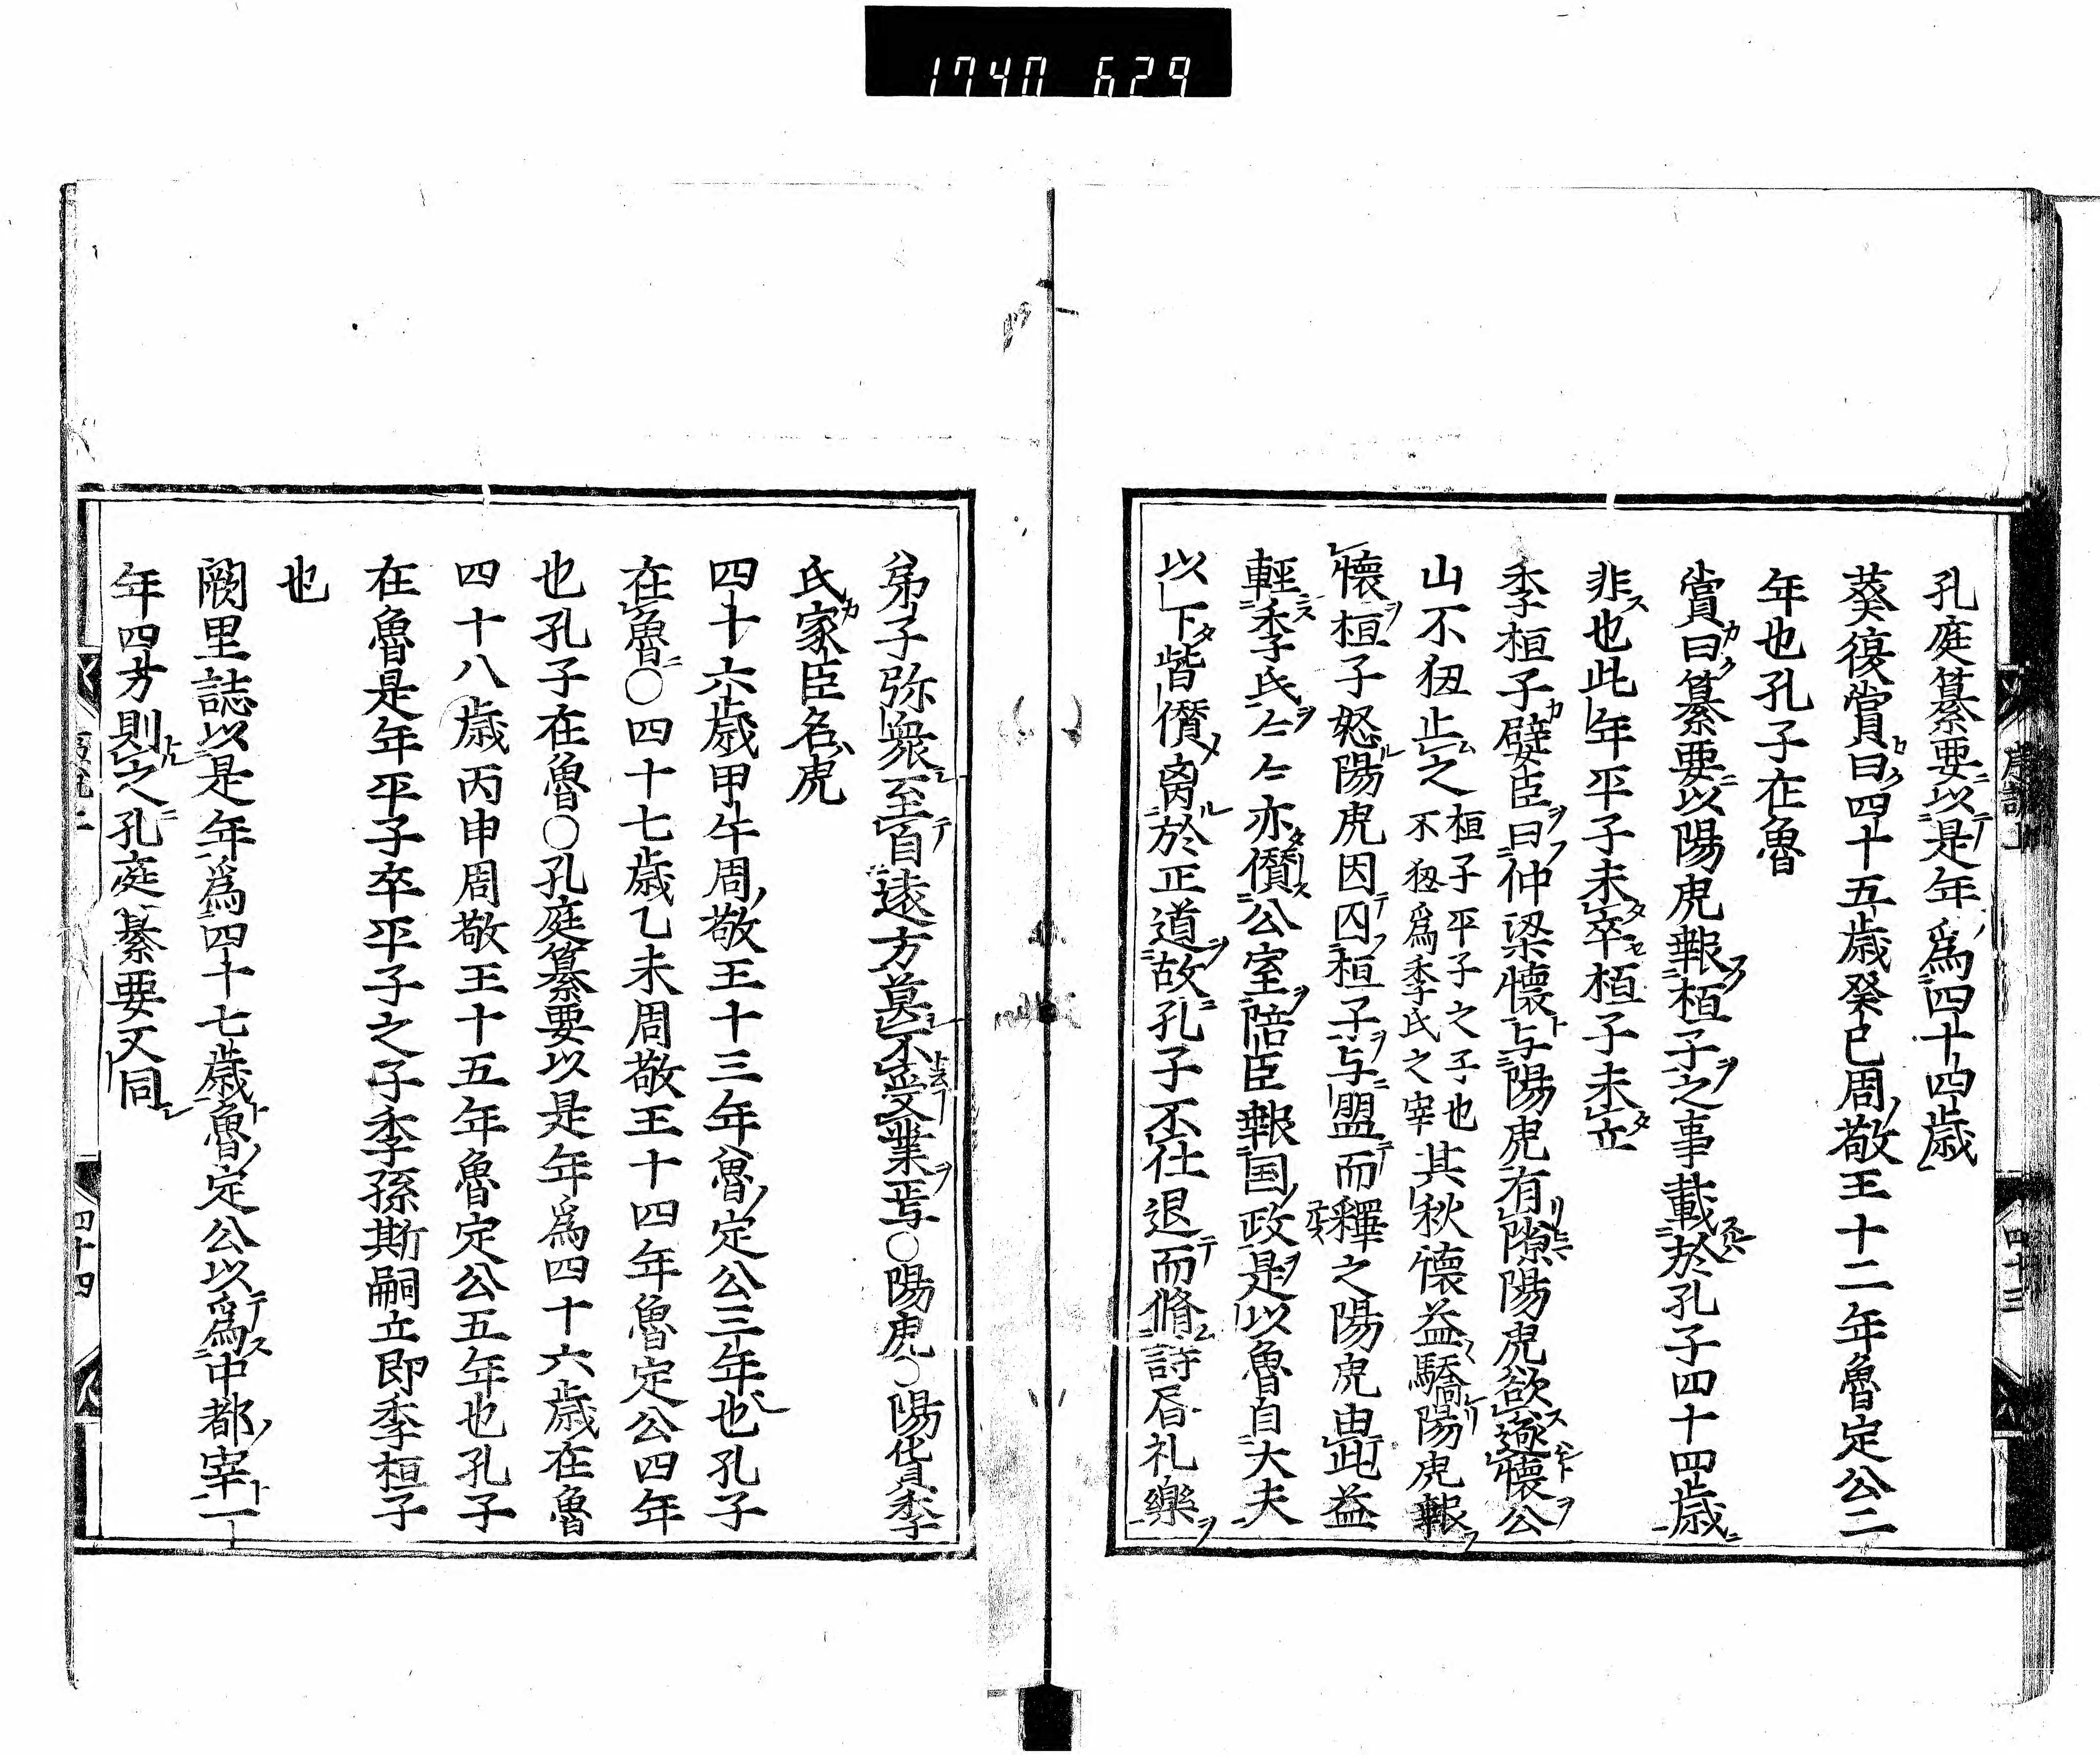 1740 629
孔庭纂要以是年爲四十四歳
葵復嘗曰四十五歳癸巳周敬王十二年魯定公二
年也孔子在魯
嘗曰纂要以陽虎報桓子之事載於孔子四十四歳
非也此年平子未卒桓子未立
季桓子嬖臣曰仲梁懷与陽虎有隙陽虎欲逐懷公
山不狃止之桓子平子之子也不狃爲季氏之宰其秋懷益驕陽虎報
懷桓子怒陽虎因囚桓子与盟而釋之陽虎由此益
輕季氏〻〻亦僭公室陪臣報国政是以魯自大夫
以下皆僭离於正道故孔子不仕退而脩詩居礼樂
四十三
弟子弥衆至自遠方莫不受業焉〇陽虎〇陽貨季
氏家臣名虎
四十六歳甲午周敬王十三年魯定公三年也孔子
在魯〇四十七歳乙未周敬王十四年魯定公四年
也孔子在魯〇孔庭纂要以是年爲四十六歳在魯
四十八歳丙申周敬王十五年魯定公五年也孔子
在魯是年平子卒平子之子季孫斯嗣立即季桓子
也
闕里誌以是年爲四十七歳魯定公以爲中都宰一
年四方則之孔庭纂要文同
四十四